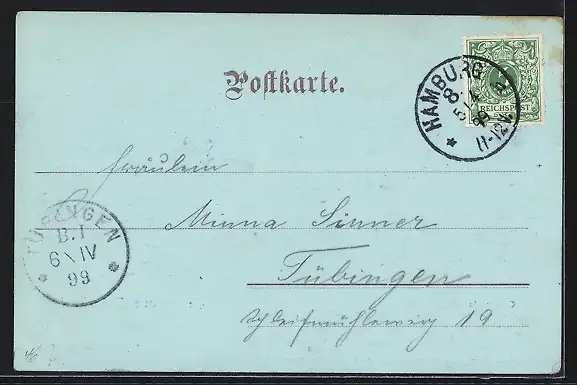 Postkarte.
HAMBURG
8.
5 4 99
11-12 V.
REICHSPOST
Fräulein
Minna Sinner
Tübingen
Schleifmühleweg 19
TÜBINGEN
B.I
6\IV
99